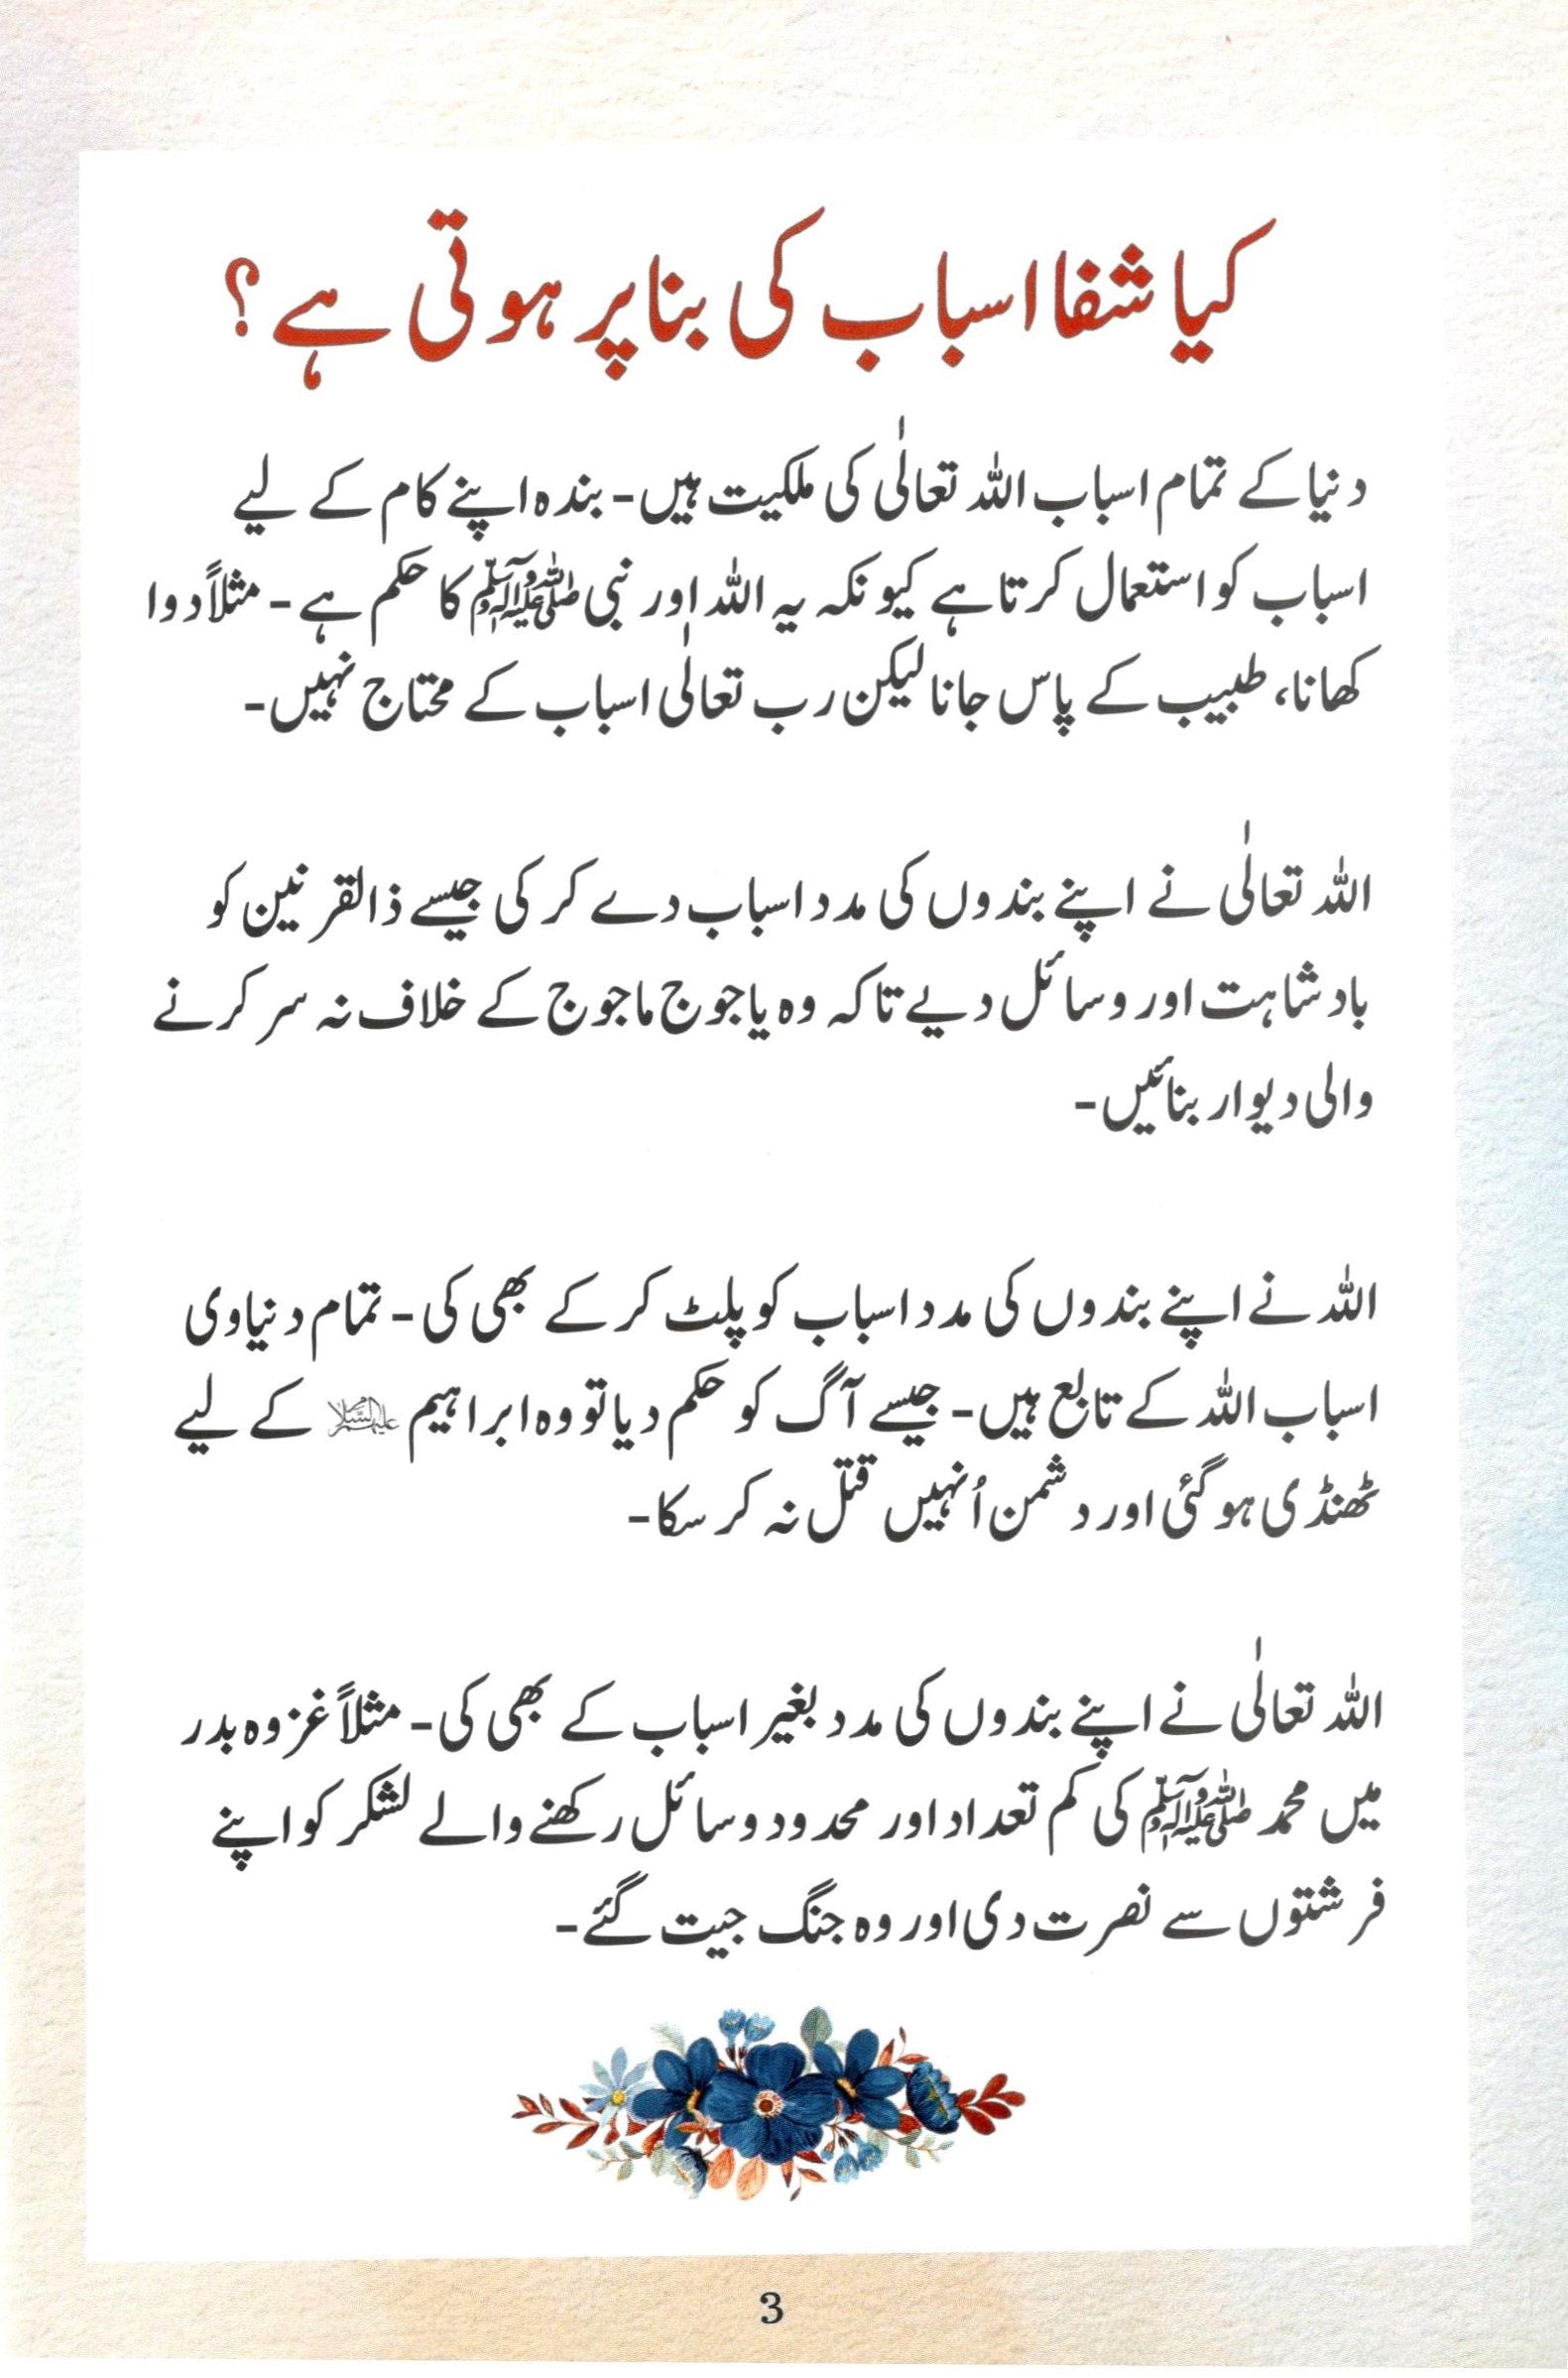 کیا شفا اسباب کی بنا پر ہوتی ہے؟
دنیا کے تمام اسباب اللہ تعالٰی کی ملکیت ہیں۔ بندہ اپنے کام کے لیے
اسباب کو استعمال کرتا ہے کیونکہ یہ اللہ اور نبی ﷺ کا حکم ہے۔ مثلاً دوا
کھانا، طبیب کے پاس جانا لیکن رب تعالٰی اسباب کے محتاج نہیں۔
اللہ تعالٰی نے اپنے بندوں کی مدد اسباب دے کر کی جیسے ذالقرنین کو
بادشاہت اور وسائل دیے تاکہ وہ یاجوج ماجوج کے خلاف نہ سر کرنے
والی دیوار بنائیں۔
اللہ نے اپنے بندوں کی مدد اسباب کو پلٹ کر کے بھی کی۔ تمام دنیاوی
اسباب اللہ کے تابع ہیں۔ جیسے آگ کو حکم دیا تو وہ ابراہیم علیہ السلام کے لیے
ٹھنڈی ہو گئی اور دشمن اُنہیں قتل نہ کر سکا۔
اللہ تعالٰی نے اپنے بندوں کی مدد بغیر اسباب کے بھی کی۔ مثلاً غزوہ بدر
میں محمد ﷺ کی کم تعداد اور محدود وسائل رکھنے والے لشکر کو اپنے
فرشتوں سے نصرت دی اور وہ جنگ جیت گئے۔
3